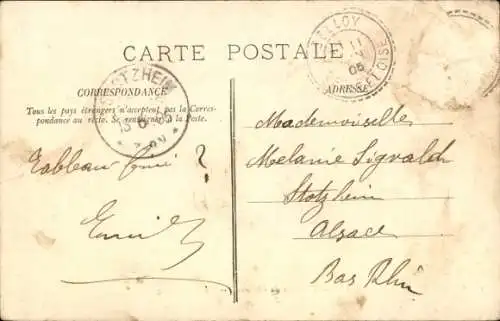 CARTE POSTALE
CORRESPONDANCE
Tous les pays étrangers n'acceptent pas la Corres-
pondance au recto. Se renseigner à la Poste.
STOTZHEIM
ADRESSE
05
OISE
Tableau fini ?
Emile
Mademoiselle
Melanie Sigwalch
Stotzheim
Alsace
Bas Rhin